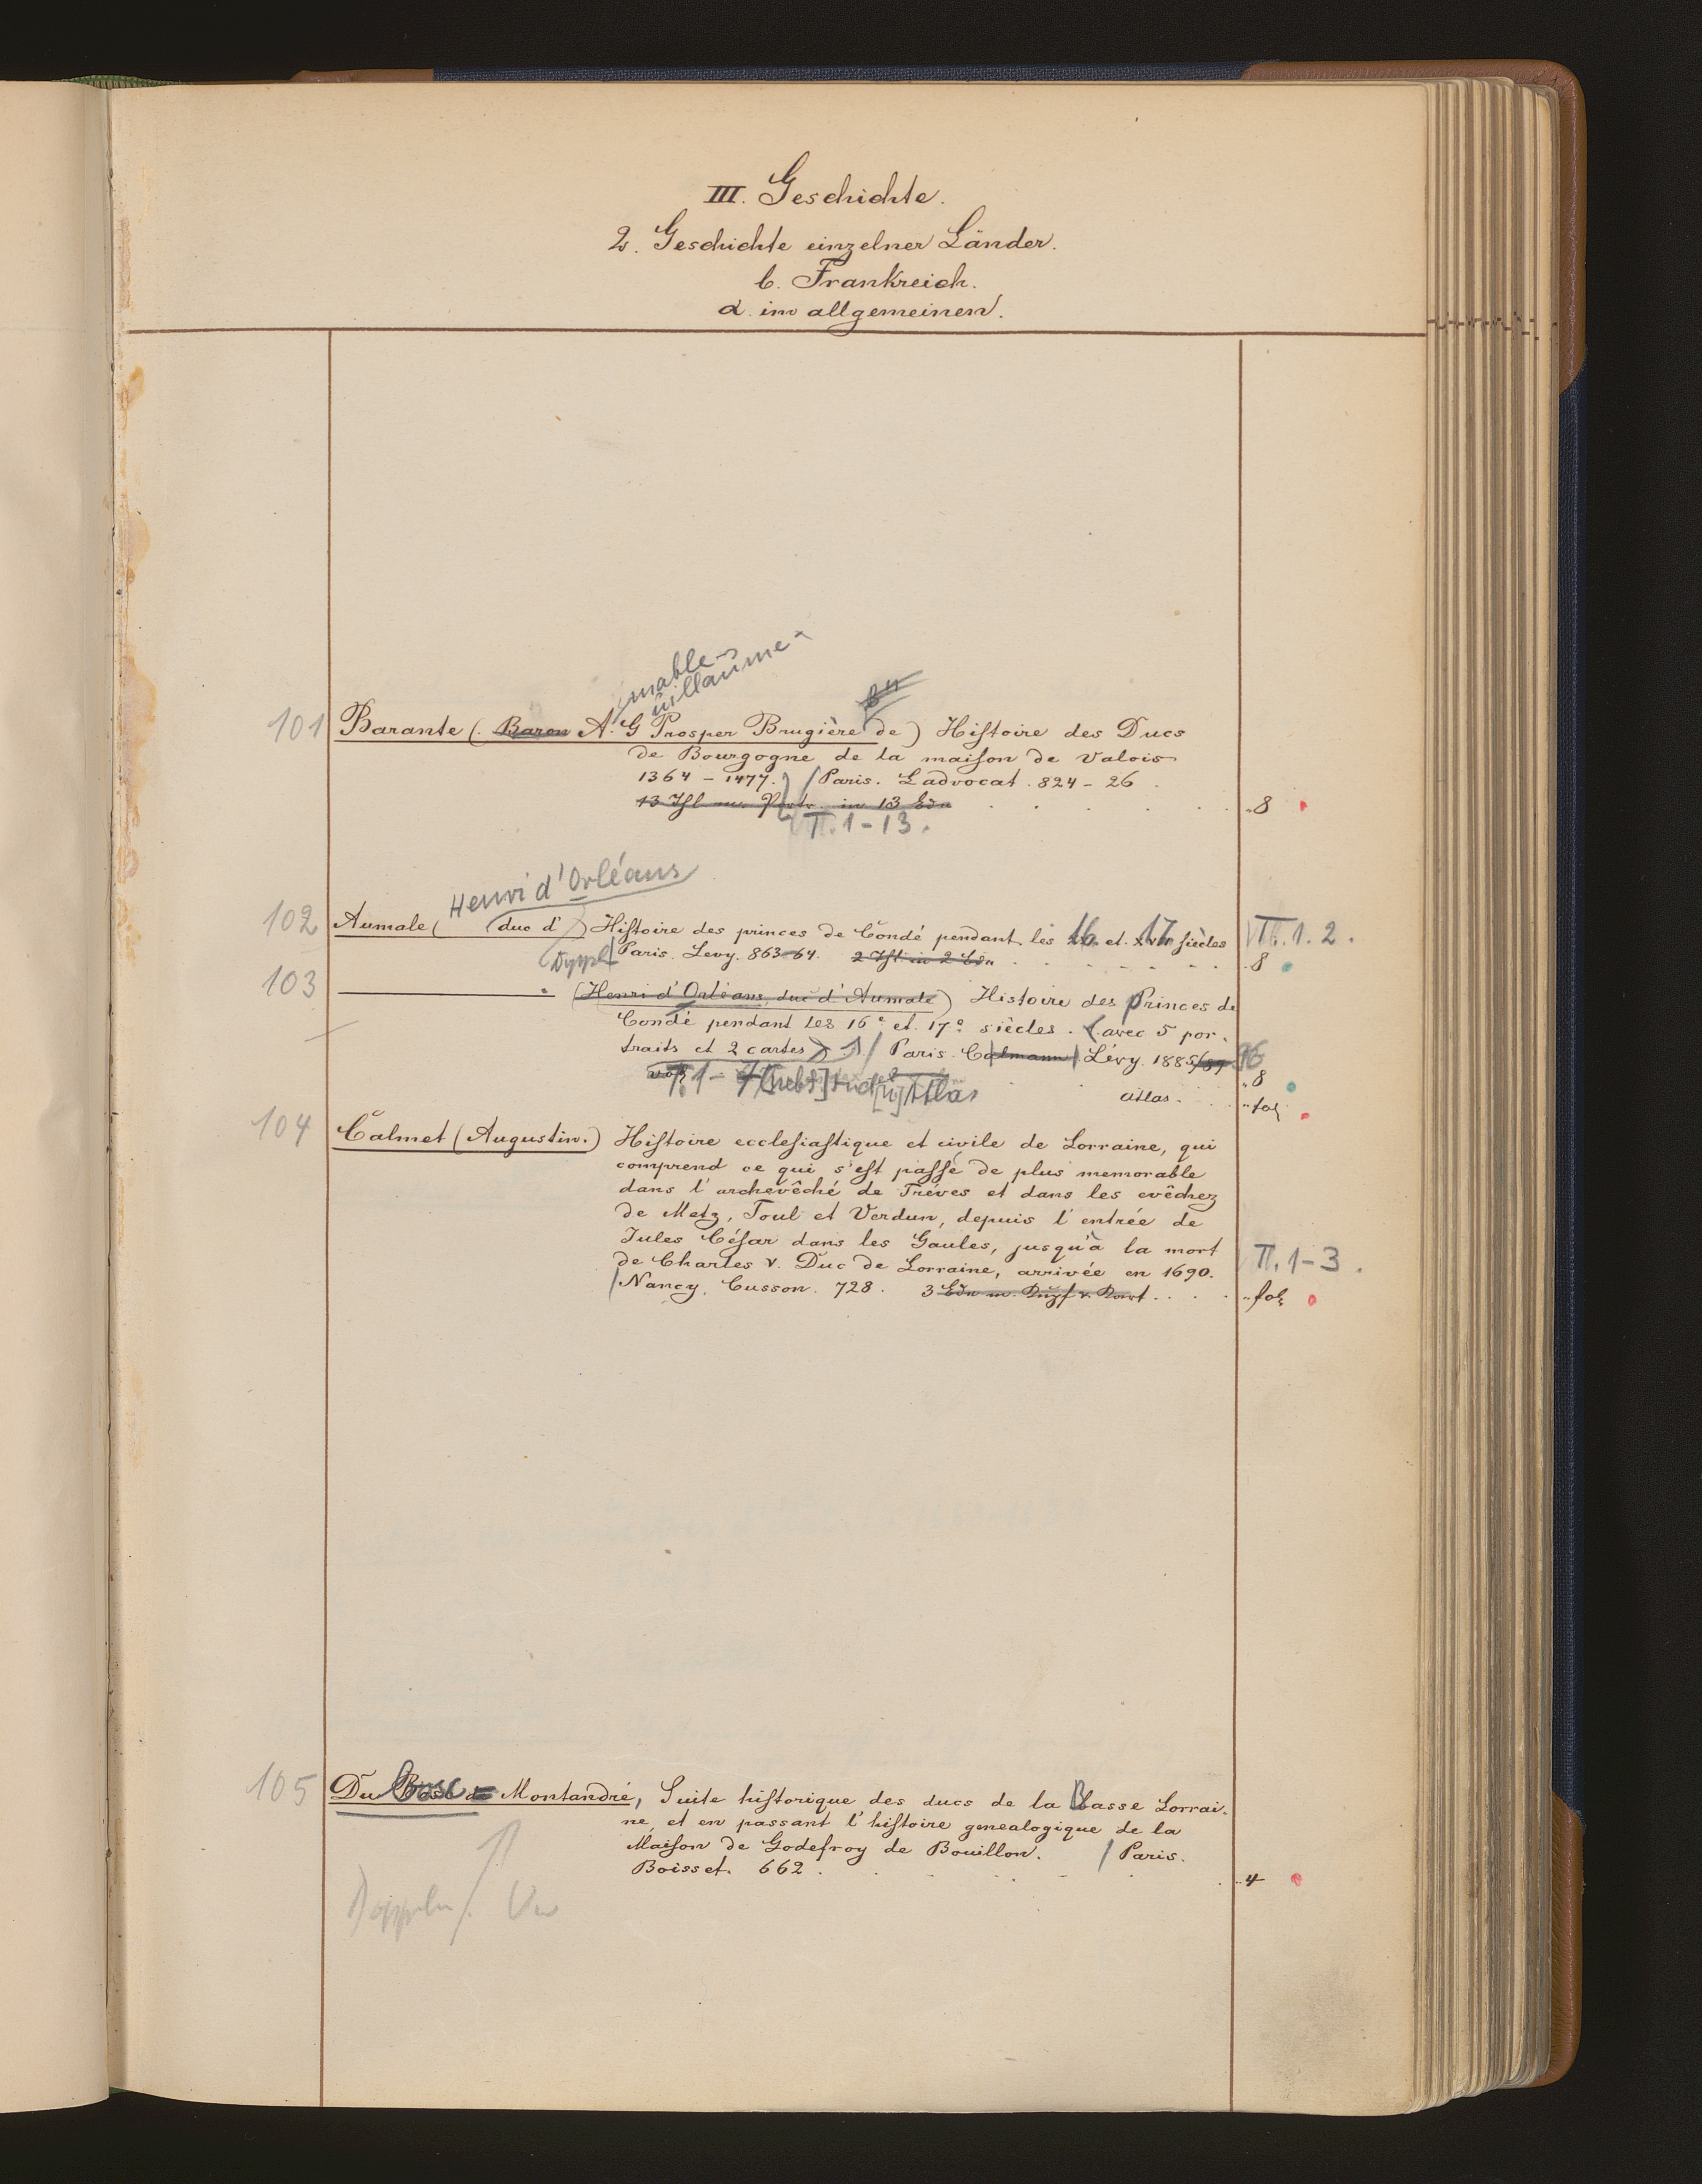 III. Geschichte.
2. Geschichte einzelner Länder.
b. Frankreich.
α. im allgemeinen.
mable-
uillaume-
101 Barante (. Baron A. G Prosper Brugière de) Histoire des Ducs
de Bourgogne de la maison de Valois
1364 - 1477.) / Paris. Ladvocat. 824 - 26.
13 Thl m. Portr. in 13 Bdn . . . . . „ 8
T. 1-13.
Henri d'Orléans
102 Aumale ( duc d') Histoire des princes de Condé pendant les 16. et. 17. siècles T. 1. 2.
Paris. Levy. 863-64. 2 Thl in 2 Bdn . . . . . „ 8
103 ——— „ (Henri d'Orléans, duc d'Aumale) Histoire des Princes de
Condé pendant les 16e et. 17e siècles. (avec 5 por-
traits et 2 cartes) / Paris. Calmann Lévy. 1885/89 96
T. 1 - 7 [nebst] Atlas „ 8
atlas. . . „ fol
104 Calmet (Augustin.) Histoire ecclesiastique et civile de Lorraine, qui
comprend ce qui s'est passé de plus memorable
dans l'archevêché de Tréves et dans les evêchez
de Metz, Toul et Verdun, depuis l'entrée de
Jules César dans les Gaules, jusqu'à la mort
de Charles V. Duc de Lorraine, arrivée en 1690. T. 1-3.
/ Nancy. Cusson. 728. 3 Bdn m. . . . „ fol
105 Du Bosc de Montandré, Suite historique des ducs de la Basse Lorrai-
ne, et en passant l'histoire genealogique de la
Maison de Godefroy de Bouillon. / Paris.
Boisset. 662 . . . . . „ 4